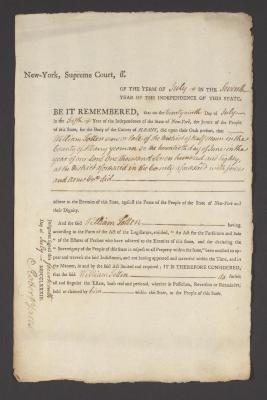 New-York, Supreme Court, ſſ.
OF THE TERM OF July IN THE Seventh
YEAR OF THE INDEPENDENCE OF THIS STATE.
BE IT REMEMBERED, that on the Day of July
in the Year of the Independence of the State of New-York, the Jurors of the People
of this State, for the Body of the County of ALBANY, did upon their Oath present, that
William Totten late of the District of in the
County of Albany yeoman on the day of June in the
year of our Lord One thousand seven hundred and Eighty,
at the District aforesaid in the County aforesaid with force
and arms &c did
adhere to the Enemies of this State, against the Peace of the People of the State of New-York and
their Dignity.
And the said William Totten having,
according to the Form of the Act of the Legislature, entitled, "An Act for the Forfeiture and Sale
"of the Estates of Persons who have adhered to the Enemies of this State, and for declaring the
"Sovereignty of the People of this State in respect to all Property within the same," been notified to ap-
pear and traverse the said Indictment, and not having appeared and traversed within the Time, and in
the Manner, in and by the said Act limited and required; IT IS THEREFORE CONSIDERED,
that the said William Totten do forfeit
all and singular the Estate, both real and personal, whether in Possession, Reversion or Remainder,
held or claimed by him within this State, to the People of this State.